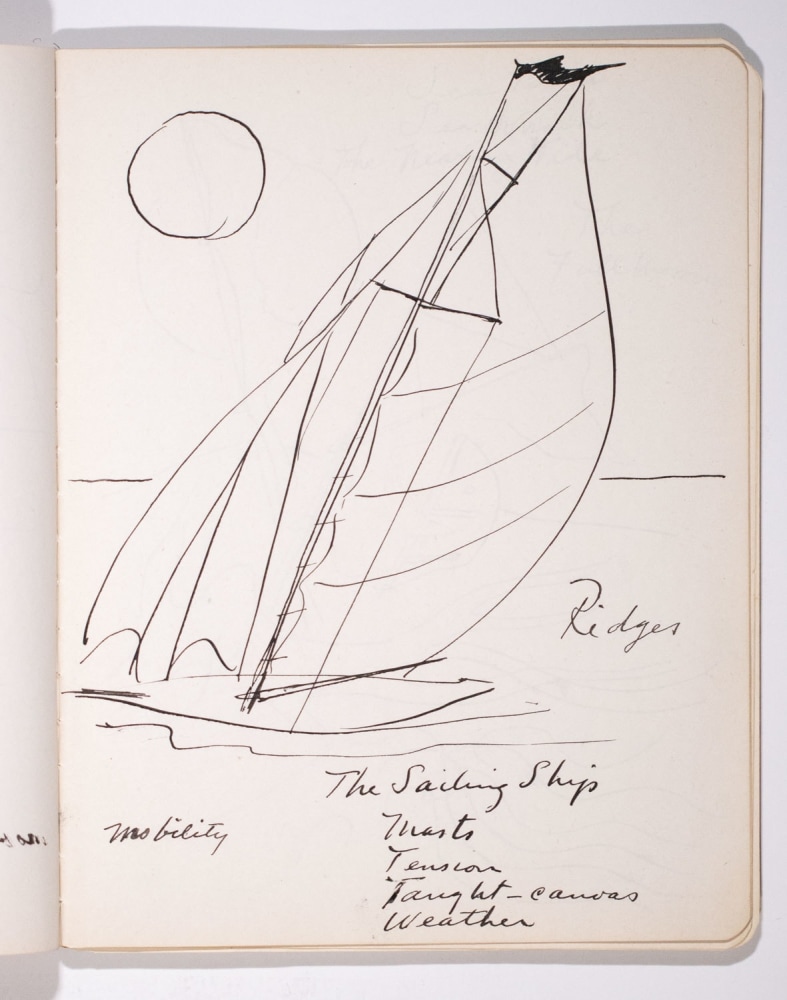 Ridges
The Sailing Ship
mobility
Masts
Tension
Taught-canvas
Weather